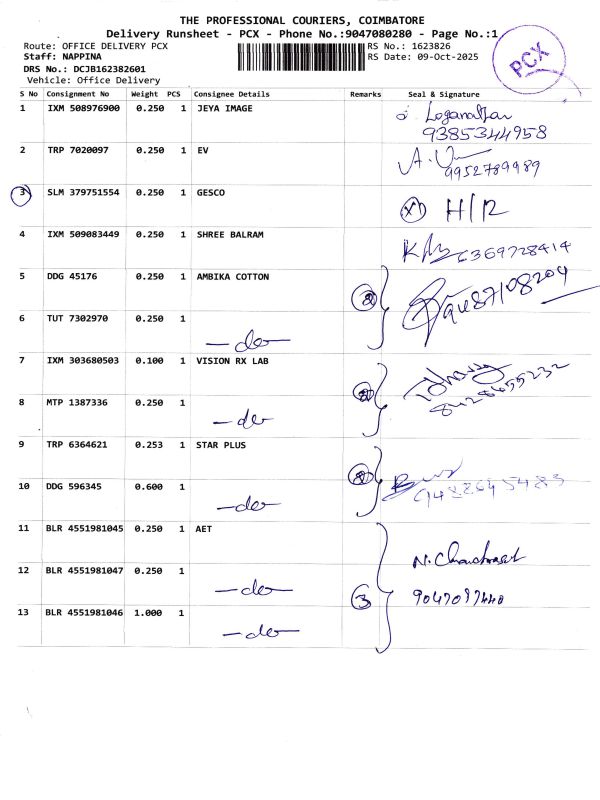 THE PROFESSIONAL COURIERS, COIMBATORE
Delivery Runsheet - PCX - Phone No.:9047080280 - Page No.:1
Route: OFFICE DELIVERY PCX
Staff: NAPPINA
DRS No.: DCJB162382601
Vehicle: Office Delivery
RS No.: 1623826
RS Date: 09-Oct-2025
PCX
S No Consignment No Weight PCS Consignee Details Remarks Seal & Signature
1 IXM 508976900 0.250 1 JEYA IMAGE
9385344958
2 TRP 7020097 0.250 1 EV
9952789989
3 SLM 379751554 0.250 1 GESCO H/R
4 IXM 509083449 0.250 1 SHREE BALRAM 6369728414
5 DDG 45176 0.250 1 AMBIKA COTTON 2
6 TUT 7302970 0.250 1 -do-
7 IXM 303680503 0.100 1 VISION RX LAB 2
8 MTP 1387336 0.250 1 -do-
9 TRP 6364621 0.253 1 STAR PLUS 2
10 DDG 596345 0.600 1 -do-
11 BLR 4551981045 0.250 1 AET
12 BLR 4551981047 0.250 1 -do- 3
13 BLR 4551981046 1.000 1 -do-